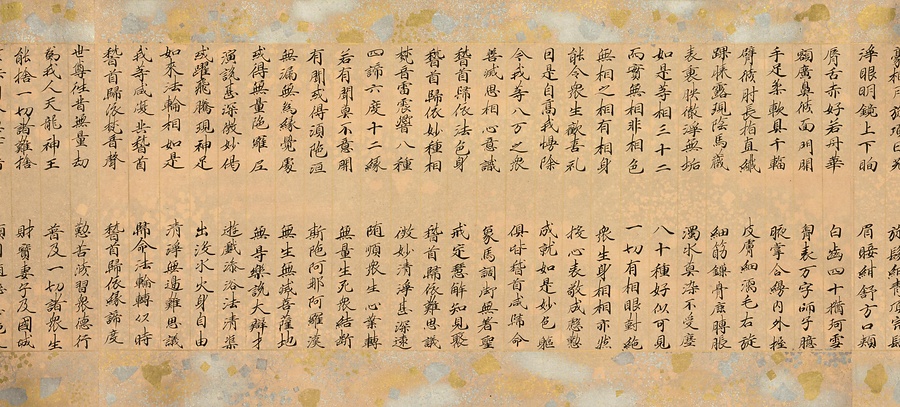 淨眼明鏡上下眴　眉睫紺舒方口頰
脣舌赤好若丹華　白齒四十猶珂雪
額廣鼻脩面門開　胷表万字師子臆
手足柔軟具千輻　腋掌合縵内外握
臂脩肘長指直纖　皮膚細濡毛右旋
踝膝露現陰馬藏　細筋鎖骨鹿膊脹
表裏映徹淨無垢　濁水莫染不受塵
如是等相三十二　八十種好似可見
而實無相非相色　一切有相眼對絶
無相之相有相身　衆生身相相亦然
能令衆生歡喜礼　投心表敬成慇懃
因是自高我慢除　成就如是妙色軀
令我等八万之衆　俱皆稽首咸歸命
善滅思相心意識　象馬調御無著聖
稽首歸依法色身　戒定慧解知見聚
稽首歸依妙種相　稽首歸依難思議
梵音雷震響八種　微妙清淨甚深遠
四諦六度十二緣　隨順衆生心業轉
若有聞莫不意開　無量生死衆結斷
有聞或得須陁洹　斯陁阿那阿羅漢
無漏無為緣覺處　無生無滅菩薩地
或得無量陁羅尼　無导樂說大辯才
演說甚深微妙偈　遊戲澡浴法清渠
或躍飛騰現神足　出没水火身自由
如來法輪相如是　清淨無邊難思議
我等咸復共稽首　歸命法輪轉以時
稽首歸依梵音聲　稽首歸依緣諦度
世尊往昔無量劫　懃苦脩習衆德行
為我人天龍神王　普及一切諸衆生
能捨一切諸難捨　財寶妻子及國城